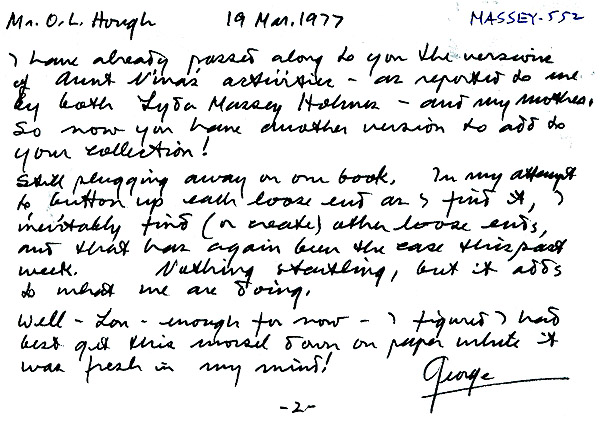 Mr. O.L. Hough 19 Mar. 1977 MASSEY-552
I have already passed along to you the versions
of Aunt Nina's activities - as reported to me
by both Lyda Massey Holmes - and my mother.
So now you have another version to add to
your collection!
Still plugging away on our book. In my attempt
to button up each loose end as I find it, I
inevitably find (or create) other loose ends,
and that has again been the case this past
week. Nothing startling, but it adds
to what we are doing.
Well - Lon - enough for now - I figured I had
best get this morsel down on paper while it
was fresh in my mind!
George
-2-